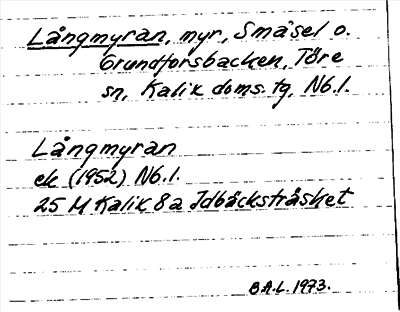 Långmyran, myr, Småsel o.
Grundforsbacken, Töre
sn, Kalix doms. tg, Nb.l.
Långmyran
ek (1952) Nb.l.
25 M Kalix 8 a Idbäcksträsket
B.A.L. 1973.